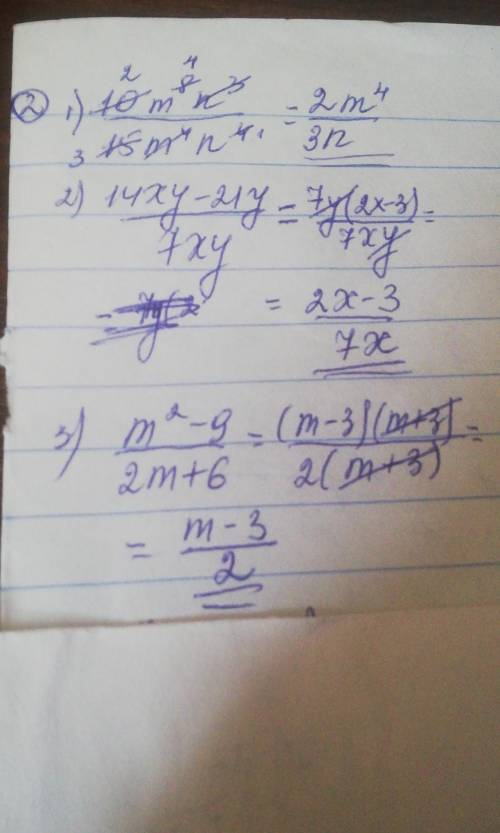 ② 1) 10m⁸n³ / 15m⁴n⁴ = 2m⁴ / 3n
2) 14xy-21y / 7xy = 7y(2x-3) / 7xy =
= 2x-3 / 7x
3) m²-9 / 2m+6 = (m-3)(m+3) / 2(m+3) =
= m-3 / 2